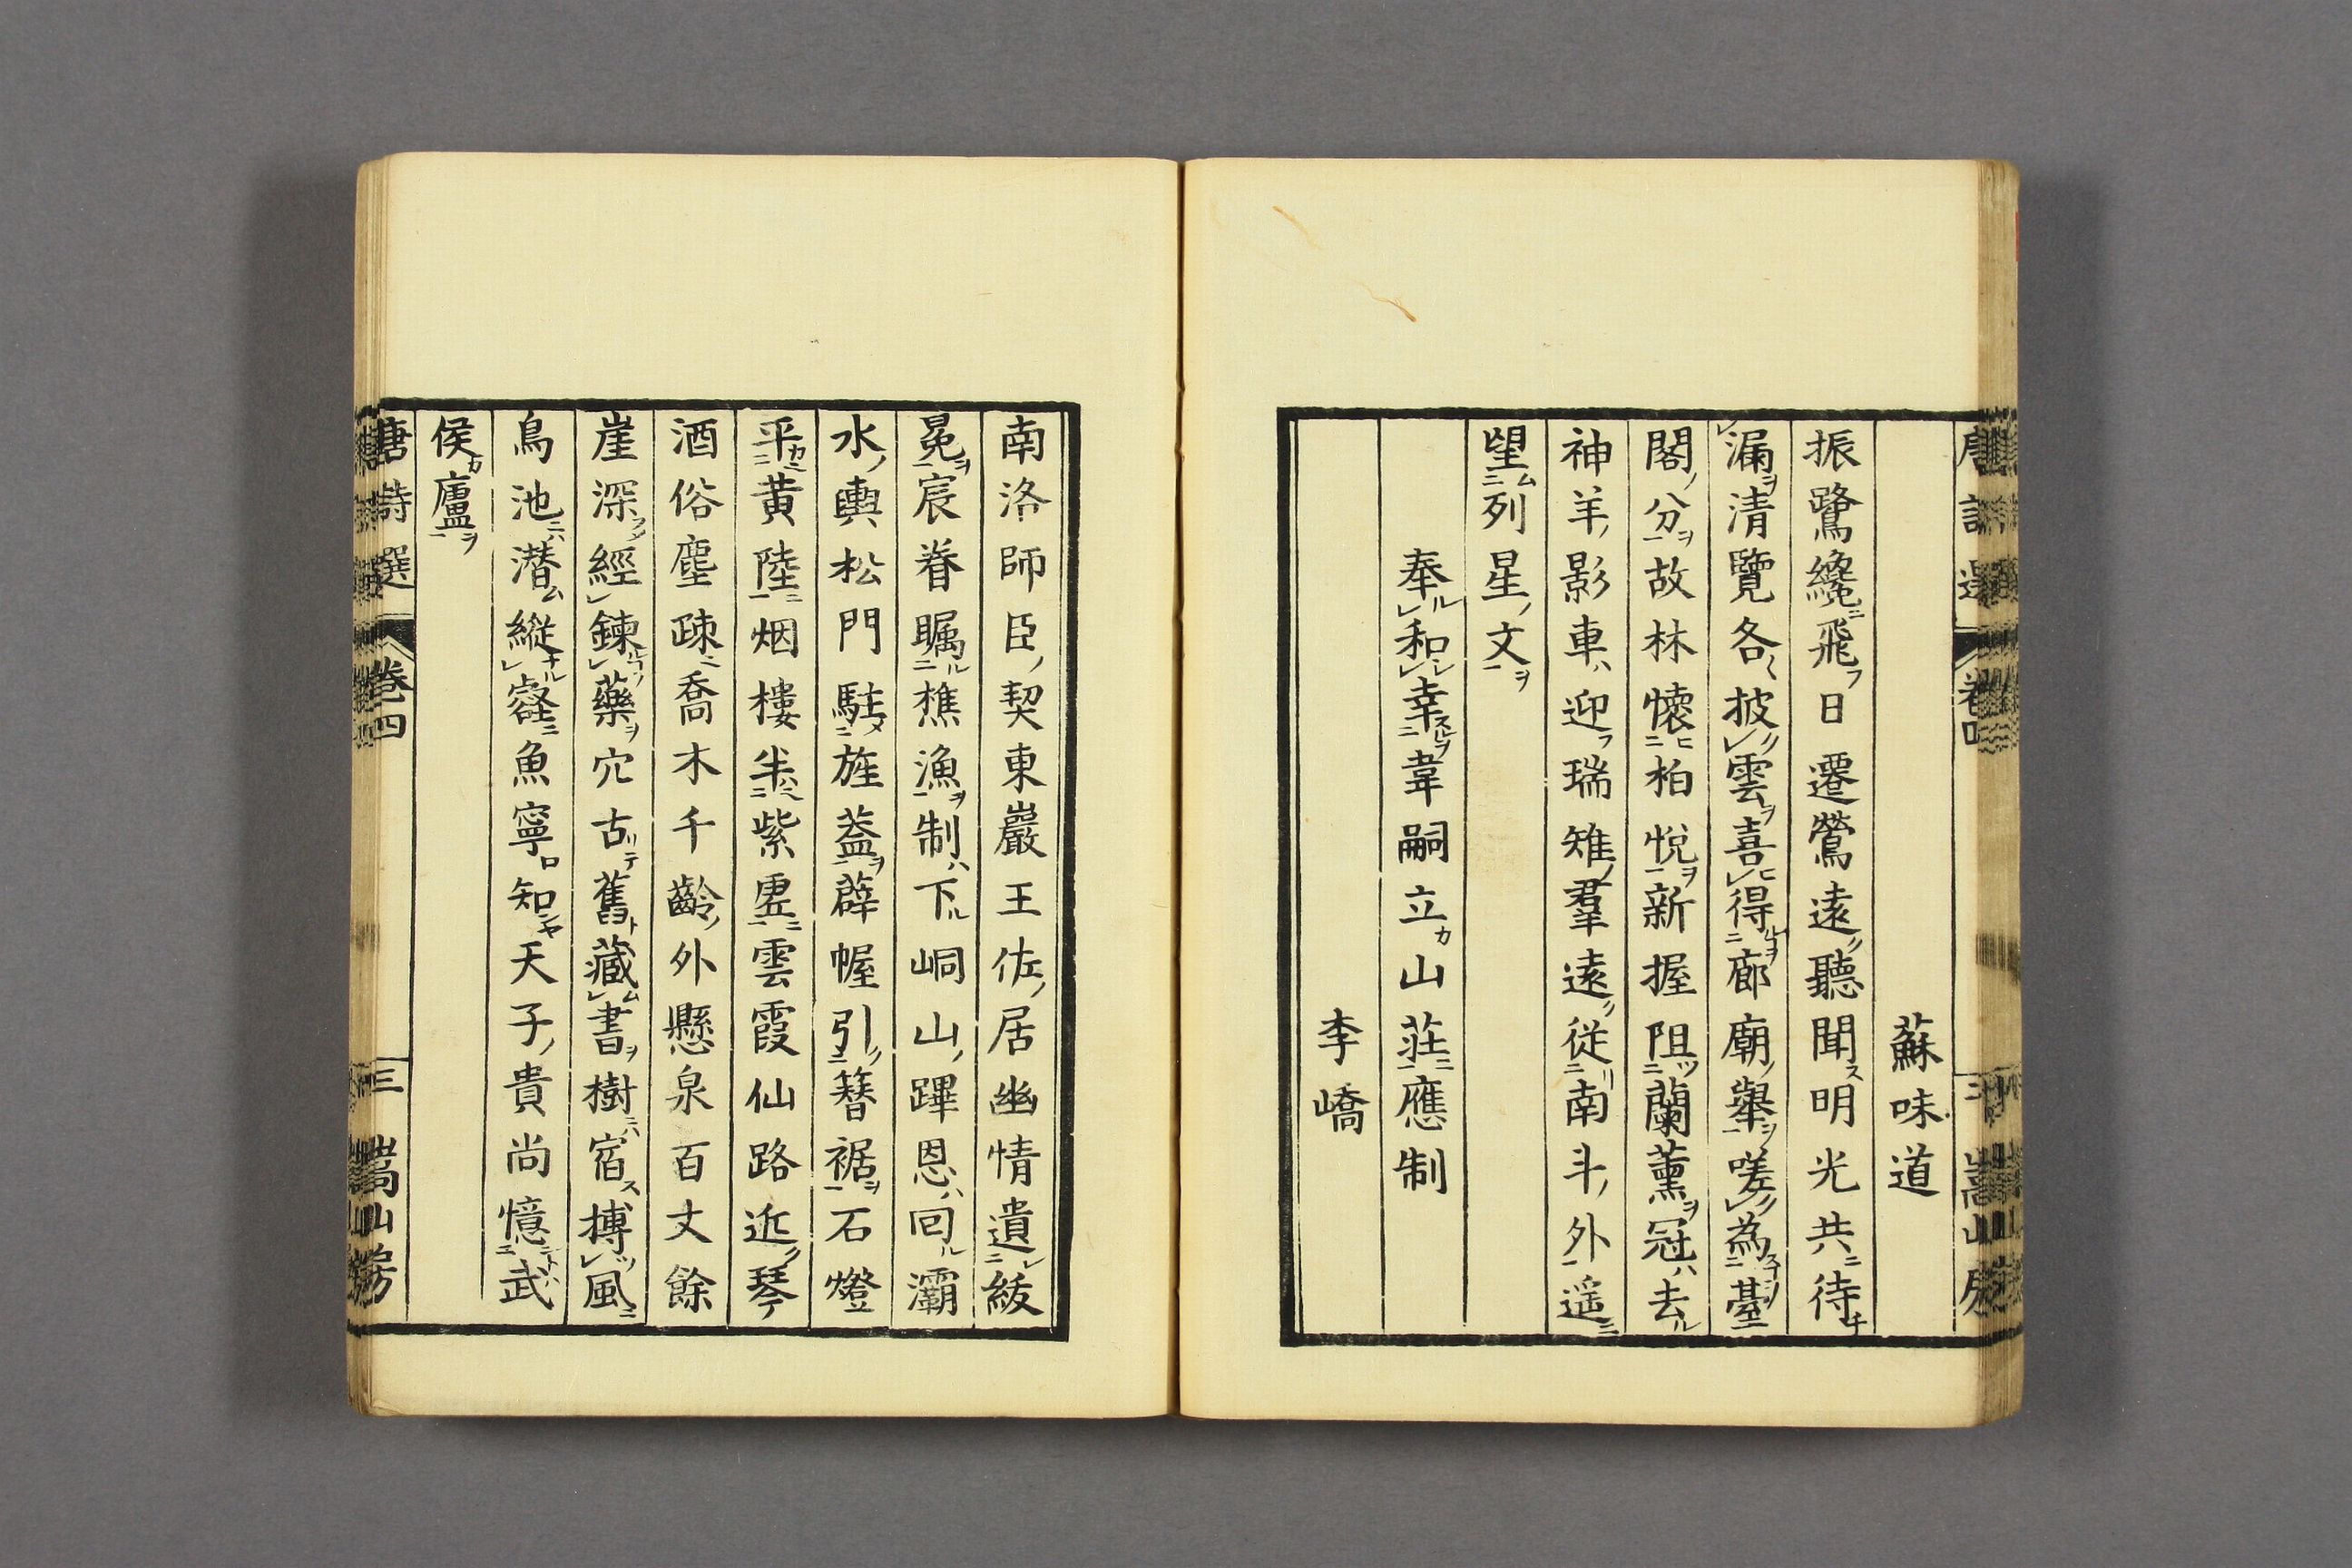 蘇味道
振鷺纔飛日遷鶯遠聽聞明光共待
漏清覽各披雲喜得廊廟舉嗟為臺
閣分故林懷柏悅新握阻蘭薰冠去
神羊影車迎瑞雉羣遠從南斗外遥
望列星文
奉和幸韋嗣立山莊應制
李嶠
南洛師臣契東巖王佐居幽情遺紱
冕宸眷矚樵漁制下峒山蹕恩回灞
水輿松門駐旌蓋薜幄引簪裾石燈
平黄陸烟樓半紫虛雲霞仙路近琴
酒俗塵疎喬木千齡外懸泉百丈餘
崖深經鍊藥穴古舊藏書樹宿搏風
鳥池潛縱壑魚寧知天子貴尚憶武
侯廬
唐詩選 卷四 三 嵩山房